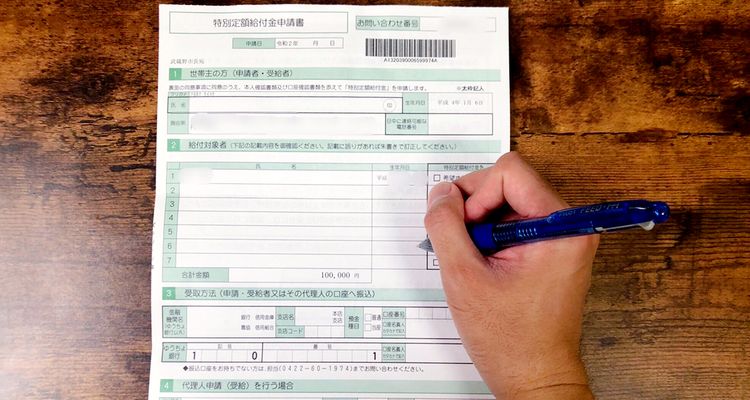 特別定額給付金申請書
お問い合わせ番号
申請日 令和2年 月 日
A1320390006599974A
武蔵野市長宛
1 世帯主の方（申請者・受給者）
裏面の同意事項に同意のうえ、本人確認書類及び口座確認書類を添えて「特別定額給付金」を申請します。
※太枠記入
氏名 印 生年月日 平成 4年 1月 6日
現住所 日中に連絡可能な
電話番号
2 給付対象者（下記の記載内容を御確認ください。記載に誤りがあれば朱書きで訂正してください。）
氏名 生年月日 特別定額給付金を
1 平成
2
3
4
5
6
7
合計金額 100,000 円
3 受取方法（申請・受給者又はその代理人の口座へ振込）
金融
機関名
(ゆうちょ
銀行以外)
銀行 信用金庫
農協 信用組合
本店
支店
支店コード
預金
種目
普通
当座
口座番号
口座名義人
カタカナで記入
ゆうちょ
銀行
記号 番号
1 0 1
口座名義人
カタカナで記入
◆振込口座をお持ちでない方は、担当(0422-60-1974)までお問い合わせください。
4 代理人申請（受給）を行う場合
Pilot FEED GP4